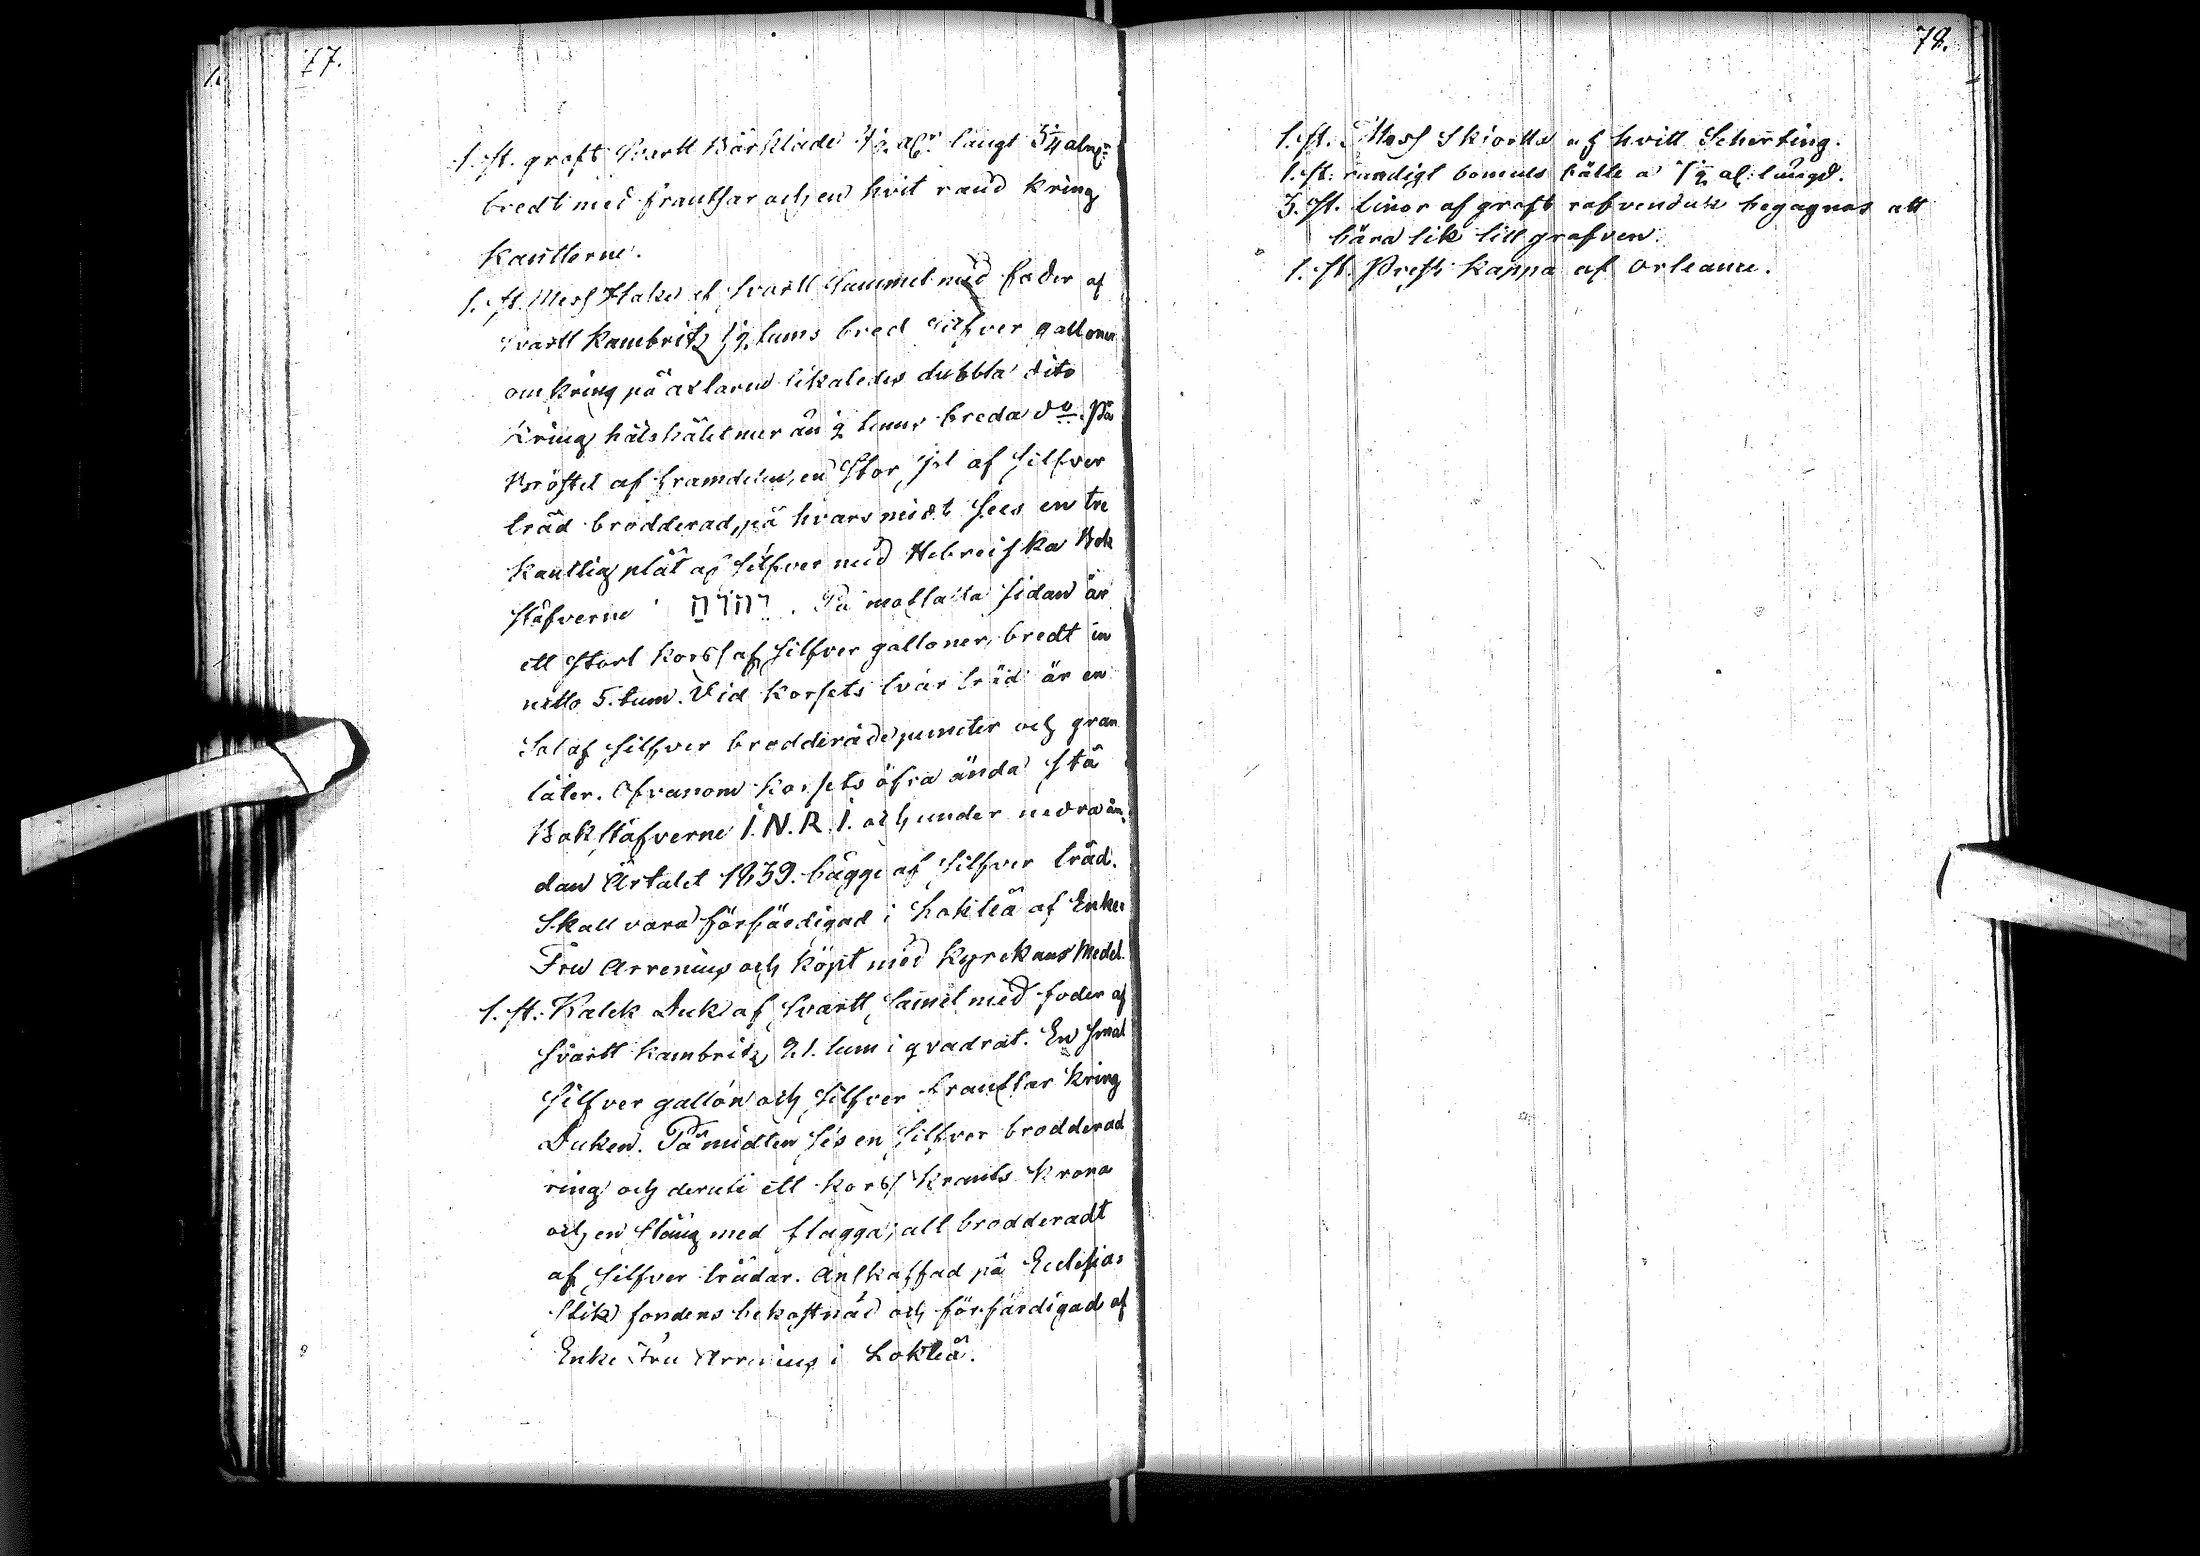 77.
1. st. groft Svartt Bårkläde långt 3¼ aln
bredt med frantsar och en hvit rand kring
kanterne.
1. st. Mess Hake af svartt Sammet med foder af
svartt Kambritz, tums bred silfver galloner
omkring på axlarne likaledes dubbla dito
Kring halshålet mer än ½ tums breda do. På
Bröstet af framdelen, en stor Sol af silfver
tråd brodderad, på hvars midt sees en tre
kantig plåt af silfver med Hebreiska Bok
stäfverne יהוה. På motsatta sidan är
ett stort korss af silfver galloner, bredt in
netto 5. tum. Vid korsets tvär träd är en
Sol af silfver brodderade puncter och gran
låter. Ofvanom korsets öfra ända stå
Bokstäfverne I.N.R.I. och under nedra än,
dan Årtalet 1839. bägge af silfver tråd.
Skall vara förfärdigad i Lokteå af Enke
Fru Arrenius och köpt med Kyrckans Medel.
1. st. Kalck Duk af svartt samet med foder af
svartt kambritz, 21. tum i qvadrat. En smal
silfver gallon och silfver frantsar kring
Duken. På midten ses en silfver brodderad
ring och deruti ett korss krants krona
och en stång med flagga; alt brodderadt
af silfver trådar. Anskaffad på Ecclesias
stik fondens bekostnad och förfärdigad af
Enke Fru Arrenius i Lokteå.
78.
1. st. Mess Skiorta af hvitt Scherting.
1. st. randigt bomuls bälte a 1½ al: längd.
3. st. linor af groft rafvenduk begagnas att
bära lik till grafven.
1. st. Prest kappa af Orleane.